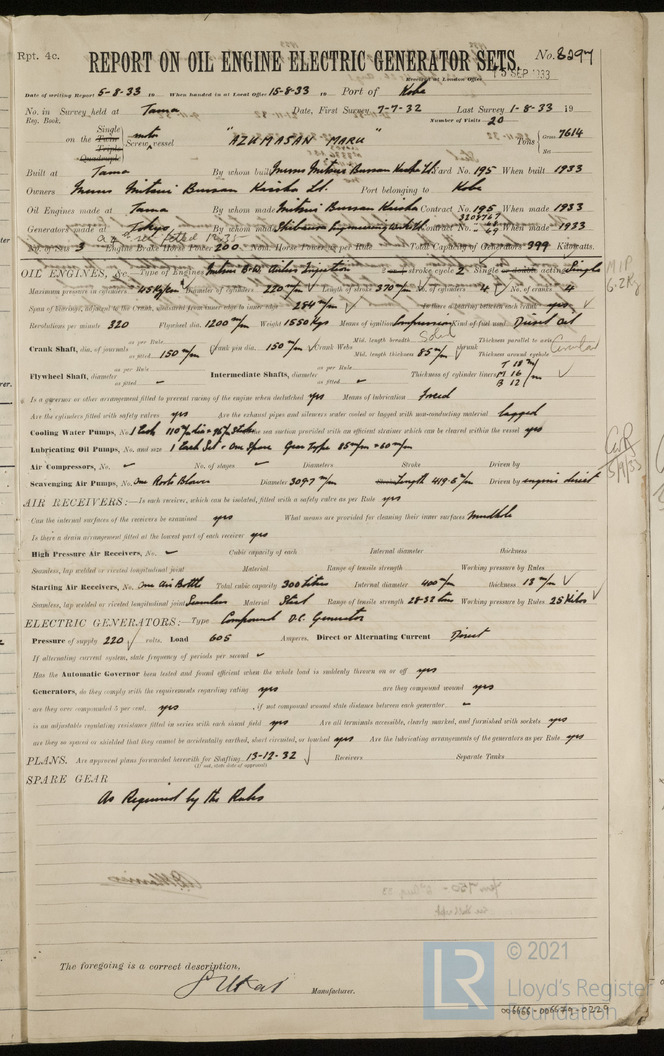 Rpt. 4c.
REPORT ON OIL ENGINE ELECTRIC GENERATOR SETS.
No. 8297
Received at London Office 15 SEP 1933
Date of writing Report 5-8-33 19 When handed in at Local Office 15-8-33 19 Port of Kobe
No. in Survey held at Tama Date, First Survey 7-7-32 Last Survey 1-8-33 19
Reg. Book. Number of Visits 20
on the Single Twin Triple Quadruple Screw motor vessel "AZUMASAN MARU" Tons Gross 7614 Net
Built at Tama By whom built Messrs Mitsui Bussan Kaisha Ld. Yard No. 195 When built 1933
Owners Messrs Mitsui Bussan Kaisha Ld. Port belonging to Kobe
Oil Engines made at Tama By whom made Mitsui Bussan Kaisha Contract No. 195 When made 1933
Generators made at Tokyo By whom made Shibaura Engineering Works Ld Contract No. When made 1933
No. of Sets 3 Engine Brake Horse Power 200 Nom. Horse Power as per Rule Total Capacity of Generators 399 Kilowatts.
OIL ENGINES, &c. Type of Engines Mitsui B & W Airless Injection 2 or 4 stroke cycle 2 Single or double acting Single
Maximum pressure in cylinders 45 Kg/cm² Diameter of cylinders 220 m/m Length of stroke 370 m/m No. of cylinders 4 No. of cranks 4
Span of bearings, adjacent to the Crank, measured from inner edge to inner edge 284 m/m Is there a bearing between each crank yes
Revolutions per minute 320 Flywheel dia. 1200 m/m Weight 1550 Kgs Means of ignition Compression Kind of fuel used Diesel Oil
Crank Shaft, dia. of journals as per Rule as fitted 150 m/m Crank pin dia. 150 m/m Crank Webs Mid. length breadth Solid Mid. length thickness 85 m/m shrunk Thickness parallel to axis Thickness around eyehole Circular
Flywheel Shaft, diameter as per Rule as fitted Intermediate Shafts, diameter as per Rule as fitted Thickness of cylinder liners T 18 m/m M 16 B 12
Is a governor or other arrangement fitted to prevent racing of the engine when declutched yes Means of lubrication Forced
Are the cylinders fitted with safety valves yes Are the exhaust pipes and silencers water cooled or lagged with non-conducting material lagged
Cooling Water Pumps, No. 1 Each 110 m/m dia × 96 m/m Stroke Is the sea suction provided with an efficient strainer which can be cleared within the vessel yes
Lubricating Oil Pumps, No. and size 1 Each Set + One Spare Gear Type 85 m/m × 60 m/m
Air Compressors, No. No. of stages Diameters Stroke Driven by
Scavenging Air Pumps, No. One Roots Blower Diameter 309.7 m/m Stroke Length 419.5 m/m Driven by engine direct
AIR RECEIVERS:—Is each receiver, which can be isolated, fitted with a safety valve as per Rule yes
Can the internal surfaces of the receivers be examined yes What means are provided for cleaning their inner surfaces Mudhole
Is there a drain arrangement fitted at the lowest part of each receiver yes
High Pressure Air Receivers, No. Cubic capacity of each Internal diameter thickness
Seamless, lap welded or riveted longitudinal joint Material Range of tensile strength Working pressure by Rules
Starting Air Receivers, No. One Air Bottle Total cubic capacity 300 Litres Internal diameter 400 m/m thickness 13 m/m
Seamless, lap welded or riveted longitudinal joint Seamless Material Steel Range of tensile strength 28-32 tons Working pressure by Rules 25 Kilos
ELECTRIC GENERATORS:—Type Compound D.C. Generator
Pressure of supply 220 volts. Load 605 Amperes. Direct or Alternating Current Direct
If alternating current system, state frequency of periods per second
Has the Automatic Governor been tested and found efficient when the whole load is suddenly thrown on or off yes
Generators, do they comply with the requirements regarding rating yes are they compound wound yes
are they over compounded 5 per cent. yes, if not compound wound state distance between each generator
is an adjustable regulating resistance fitted in series with each shunt field yes Are all terminals accessible, clearly marked, and furnished with sockets yes
are they so spaced or shielded that they cannot be accidentally earthed, short circuited, or touched yes Are the lubricating arrangements of the generators as per Rule yes
PLANS. Are approved plans forwarded herewith for Shafting 13-12-32 Receivers Separate Tanks
(If not, state date of approval)
SPARE GEAR
As Required by the Rules
MIP
6.2 Kg
5/9/33
The foregoing is a correct description,
Manufacturer.
© 2021
LR
Lloyd's Register
Foundation
006666-006679-0229